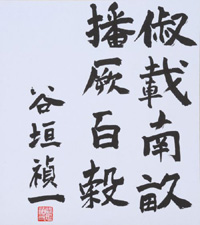 俶載南畝
播厥百穀
谷垣禎一